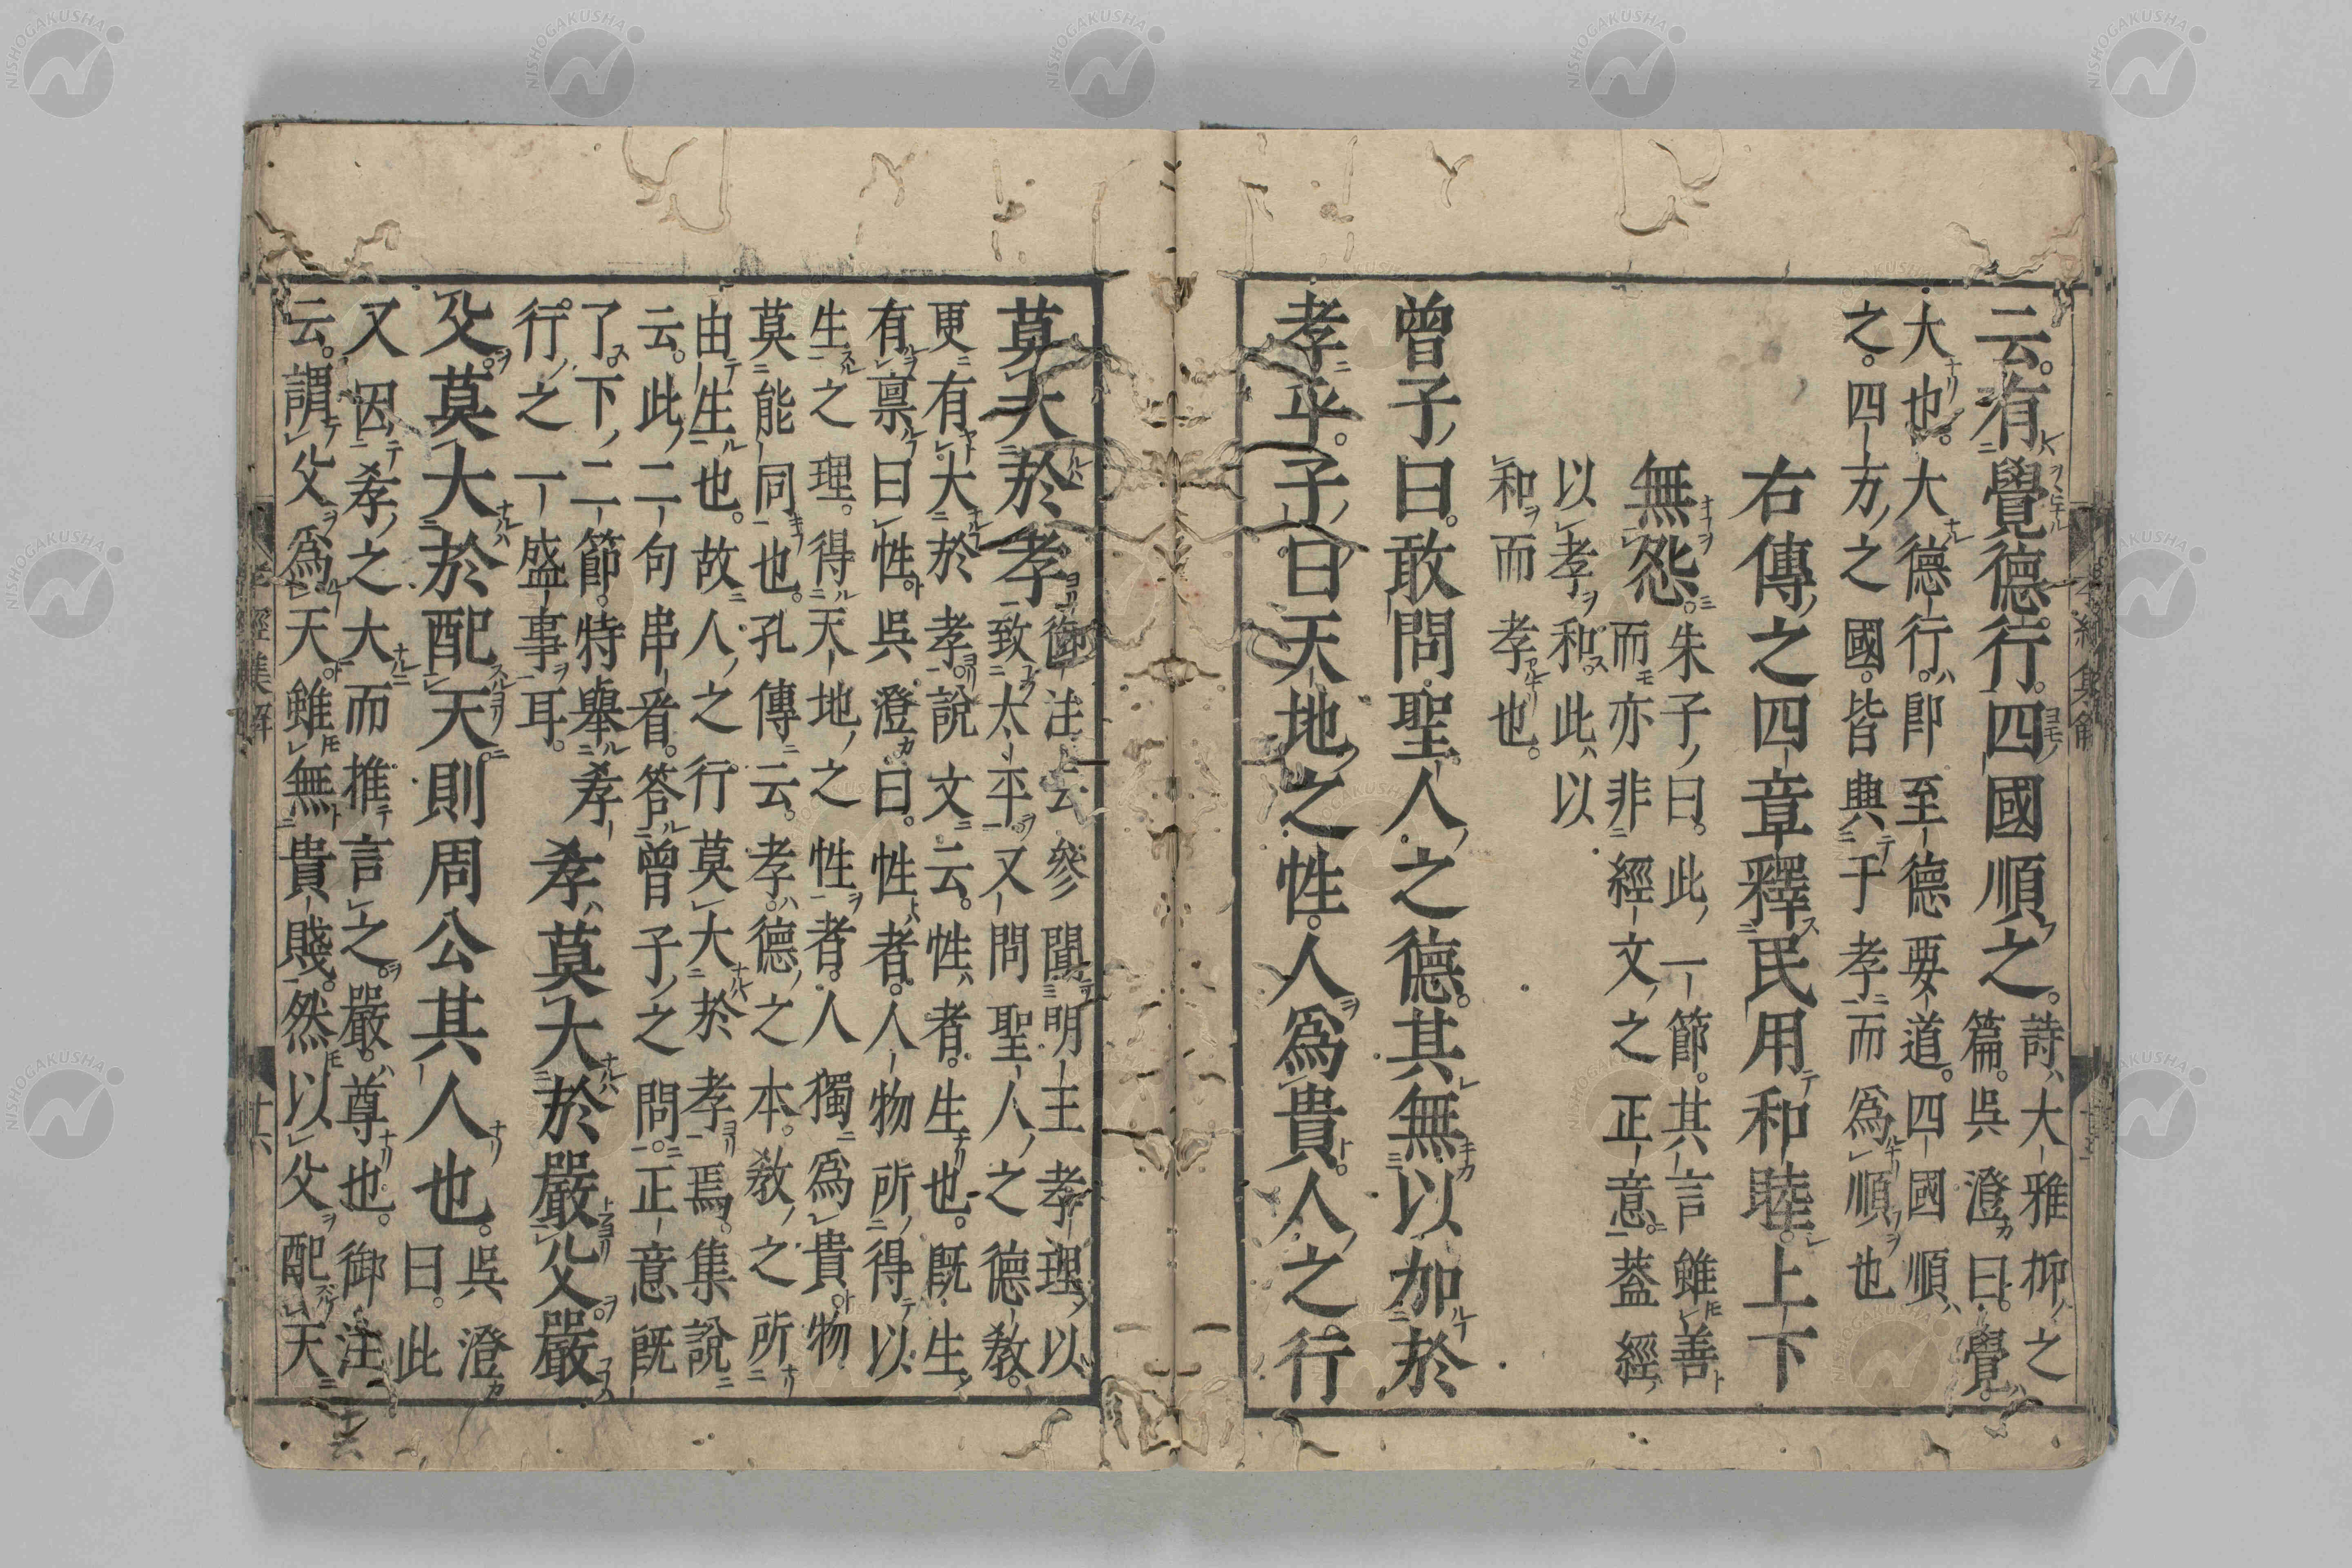 云。有覺德行。四國順之。詩大雅抑之
篇。吳澄曰。覺
大也。大德行。即至德要道。四國順
之。四方之國。皆興于孝而爲順也
右傳之四章釋民用和睦。上下
無怨。朱子曰。此一節。其言雖善
而亦非經文之正意。蓋經
以孝和。此以
和而孝也。
曾子曰。敢問聖人之德。其無以加於
孝乎。子曰天地之性。人爲貴。人之行
莫大於孝。御注云參聞明主孝理以
致太平。又問聖人之德教。
更有大於孝。說文云。性者。生也。既生
有稟曰性。吳澄曰。性者。人物所得以
生之理。得天地之性者。人獨爲貴。物
莫能同也。孔傳云。孝德之本。教之所
由生也。故人之行莫大於孝焉。集說
云。此二句串看。答曾子之問。正意既
了。下二節。特舉孝
行之一盛事耳。
孝莫大於嚴父嚴
父莫大於配天。則周公其人也。吳澄
曰。此
又因孝之大而推言之。嚴尊也。御注
云。謂父爲天。雖無貴賤。然以父配天
孝經集解
廿六
十六